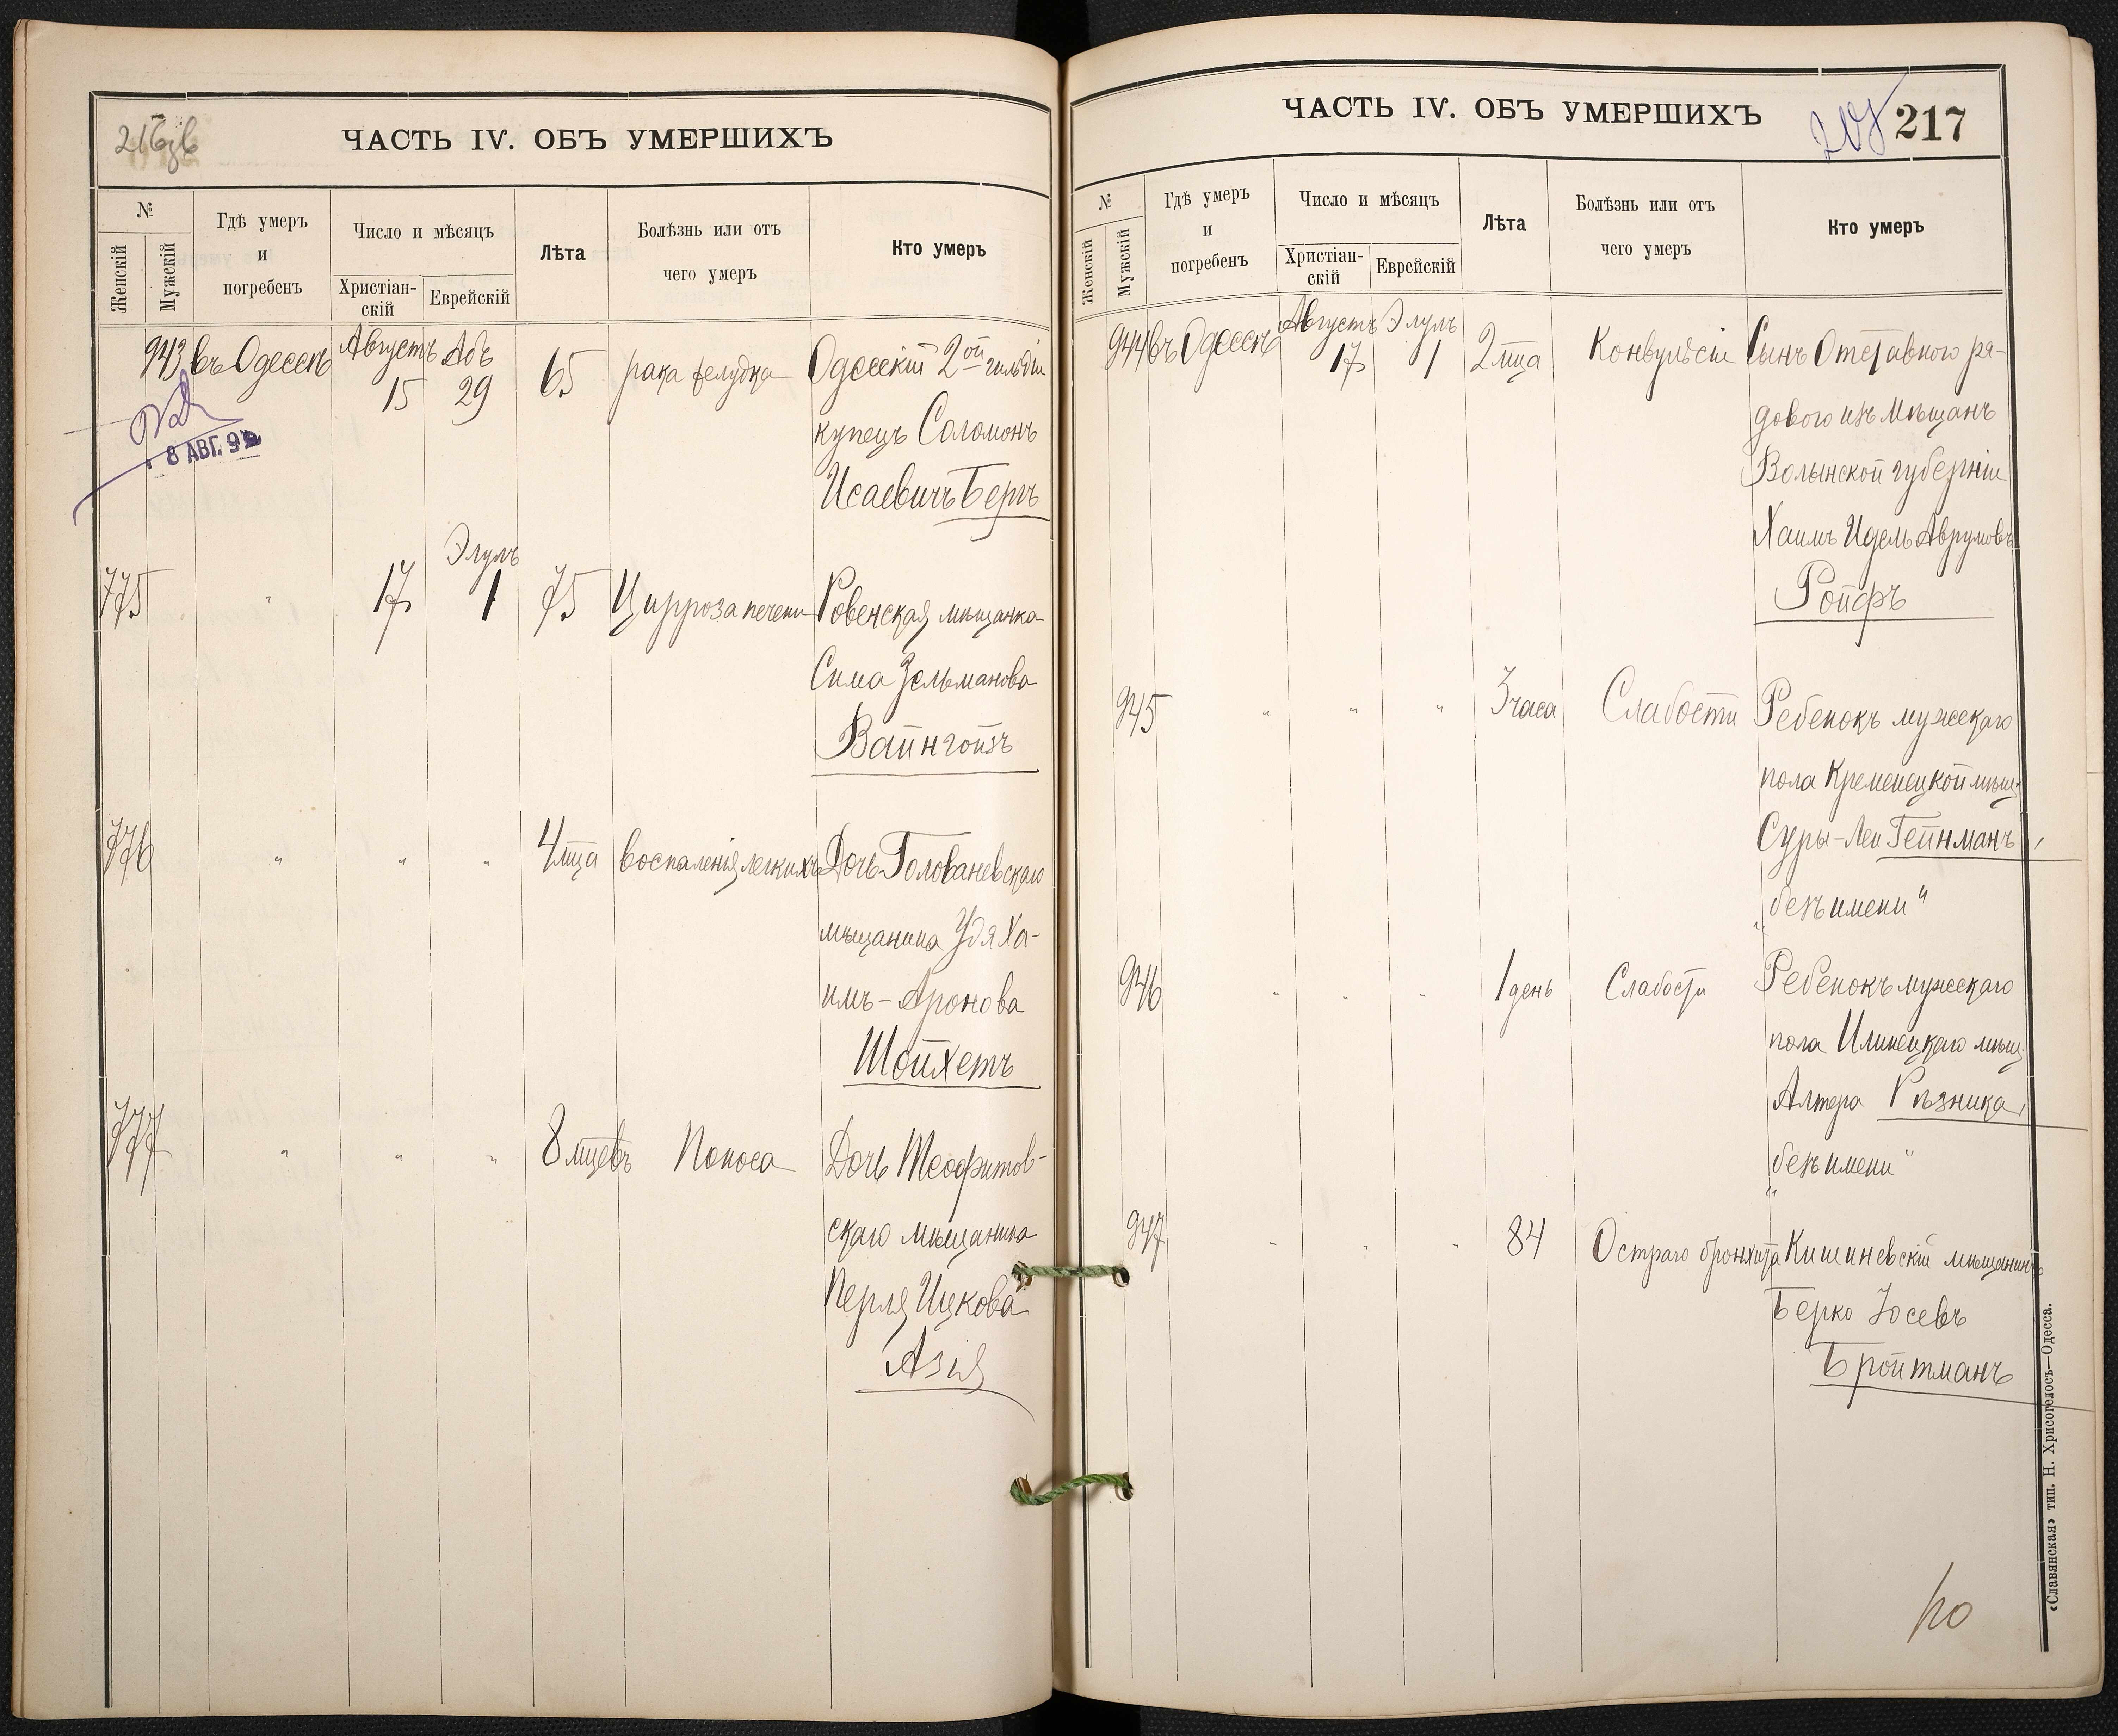 216об
ЧАСТЬ IV. ОБЪ УМЕРШИХЪ
№
Женскій
Мужскій
Гдѣ умеръ
и
погребенъ
Число и мѣсяцъ
Христіан-
скій
Еврейскій
Лѣта
Болѣзнь или отъ
чего умеръ
Кто умеръ
943 въ Одессѣ Августъ 15 Абъ 29 65 рака желудка Одесскій 2ой гильдіи
купецъ Соломонъ
Исаевичъ Бергъ
8 АВГ. 9
Элулъ
775 " 17 1 75 Цирроза печени Ровенская мѣщанка
Сима Зельманова
Вайнгойзъ
776 " " " 4 мца воспаленія легкихъ Дочь Голованевскаго
мѣщанина Удя Ха-
имъ-Аронова
Шойхетъ
777 " " " 8 мцевъ Поноса Дочь Теофитов-
скаго мѣщанина
Перля Ицкова
Азія
ЧАСТЬ IV. ОБЪ УМЕРШИХЪ
217
№
Женскій
Мужскій
Гдѣ умеръ
и
погребенъ
Число и мѣсяцъ
Христіан-
скій
Еврейскій
Лѣта
Болѣзнь или отъ
чего умеръ
Кто умеръ
944 въ Одессѣ Августъ 17 Элулъ 1 2 мца Конвульсіи Сынъ Отставного ря-
дового изъ мѣщанъ
Волынской губерніи
Хаимъ Идель Аврумовъ
Ройфъ
945 " " " 3 часа Слабости Ребенокъ мужескаго
пола Кременецкой мѣщ.
Суры-Леи Гейнманъ,
„безъ имени"
946 " " " 1 день Слабости Ребенокъ мужескаго
пола Илинецкаго мѣщ.
Алтера Рѣзника,
„безъ имени"
947 " " " 84 Остраго бронхита Кишиневскій мѣщанинъ
Берко Іосевъ
Бройтманъ
«Славянская» тип. Н. Хрисогелосъ—Одесса.